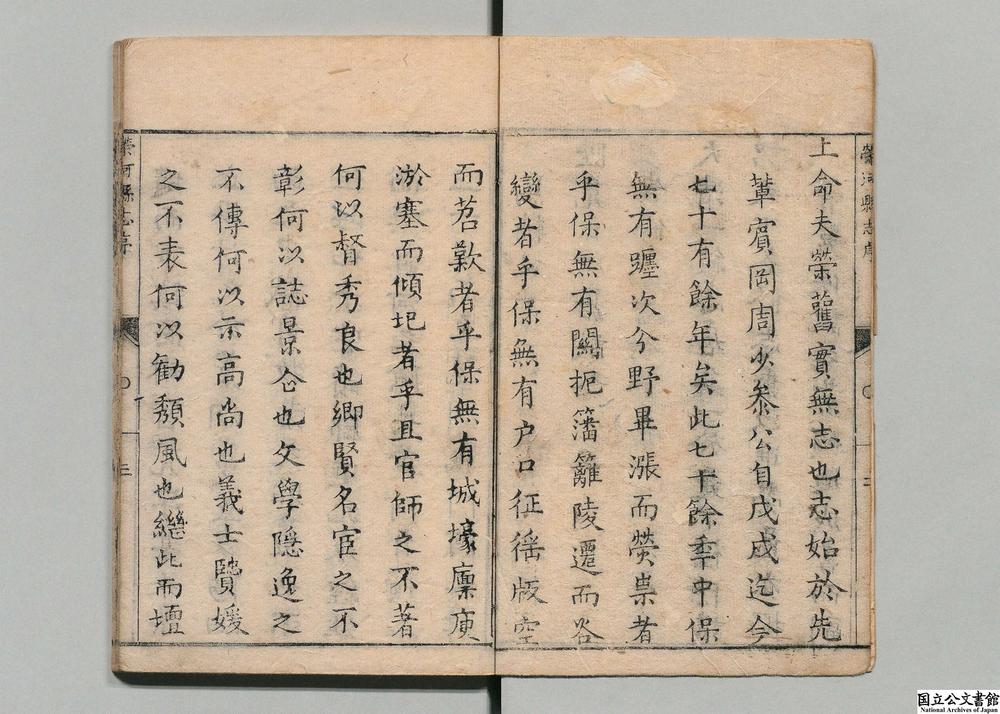 上命夫榮舊實無志也志始於先
輩賓岡周少參公自戊戌迄今
七十有餘年矣此七十餘季中保
無有躔次分野畢漲而熒祟者
乎保無有關扼籓籬陵遷而谷
變者乎保無有户口征徭版空
而苕歎者乎保無有城壕廩庾
淤塞而傾圮者乎且官師之不著
何以督秀良也鄉賢名宦之不
彰何以誌景仰也文學隱逸之
不傳何以示高尚也義士賢媛
之不表何以勸頹風也繼此而壇
榮河縣志序
三
国立公文書館
National Archives of Japan